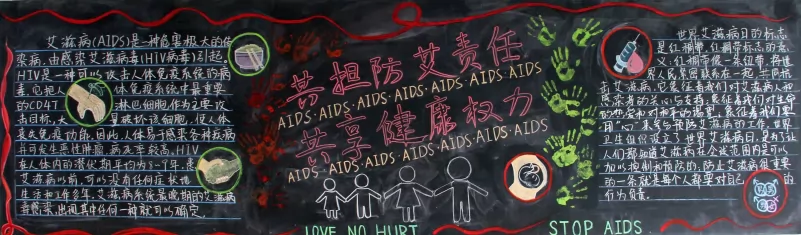 艾滋病(AIDS)是一种危害极大的传
染病,由感染艾滋病毒(HIV病毒)引起,
HIV是一种可以攻击人体免疫系统的病
毒,它把人体免疫系统中最重要
的CD4T淋巴细胞作为主要攻
击目标,大量破坏该细胞,使人体
丧失免疫功能,因此,人体易于感染各种疾病
并可发生恶性肿瘤,病死率较高,HIV
在人体内的潜伏期平均为8-9年,患
艾滋病以前,可以没有任何症状地
生活和工作多年,艾滋病系统最晚期的艾滋病
毒感染,出现其中任何一种就可以确定。
共担防艾责任
AIDS·AIDS·AIDS·AIDS·AIDS·AIDS·AIDS
共享健康权力
AIDS·AIDS·AIDS·AIDS·AIDS·AIDS·AIDS
LOVE NO HURT
STOP AIDS
世界艾滋病日的标志
是红绸带,红绸带标志的意
义:红绸带像一条纽带,将世
界人民紧密联系在一起,共同抗
击艾滋病,它象征着我们对艾滋病人和
感染者的关心与支持,象征着我们对生命
的热爱和对和平的渴望,象征着我们要
用"心"来参与预防艾滋病的工作,世界
卫生组织设立了世界艾滋病日,是为了让
人们都知道艾滋病在全球范围是可以
加以控制和预防的,防止艾滋病很重要
的一条就是每个人都要对自己的
行为负责。